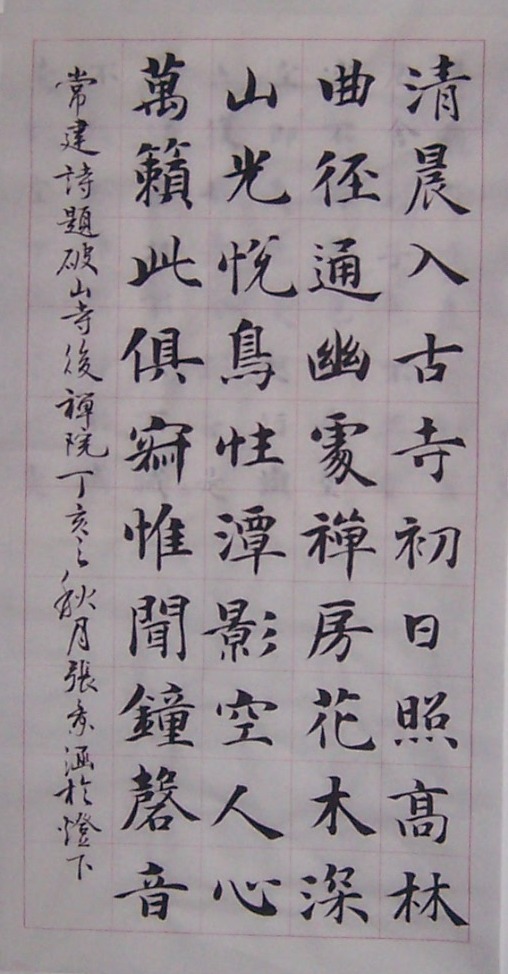 清晨入古寺初日照高林
曲径通幽處禪房花木深
山光悅鳥性潭影空人心
萬籟此俱寂惟聞鐘磬音
常建詩題破山寺後禪院丁亥之秋月張景涵於燈下